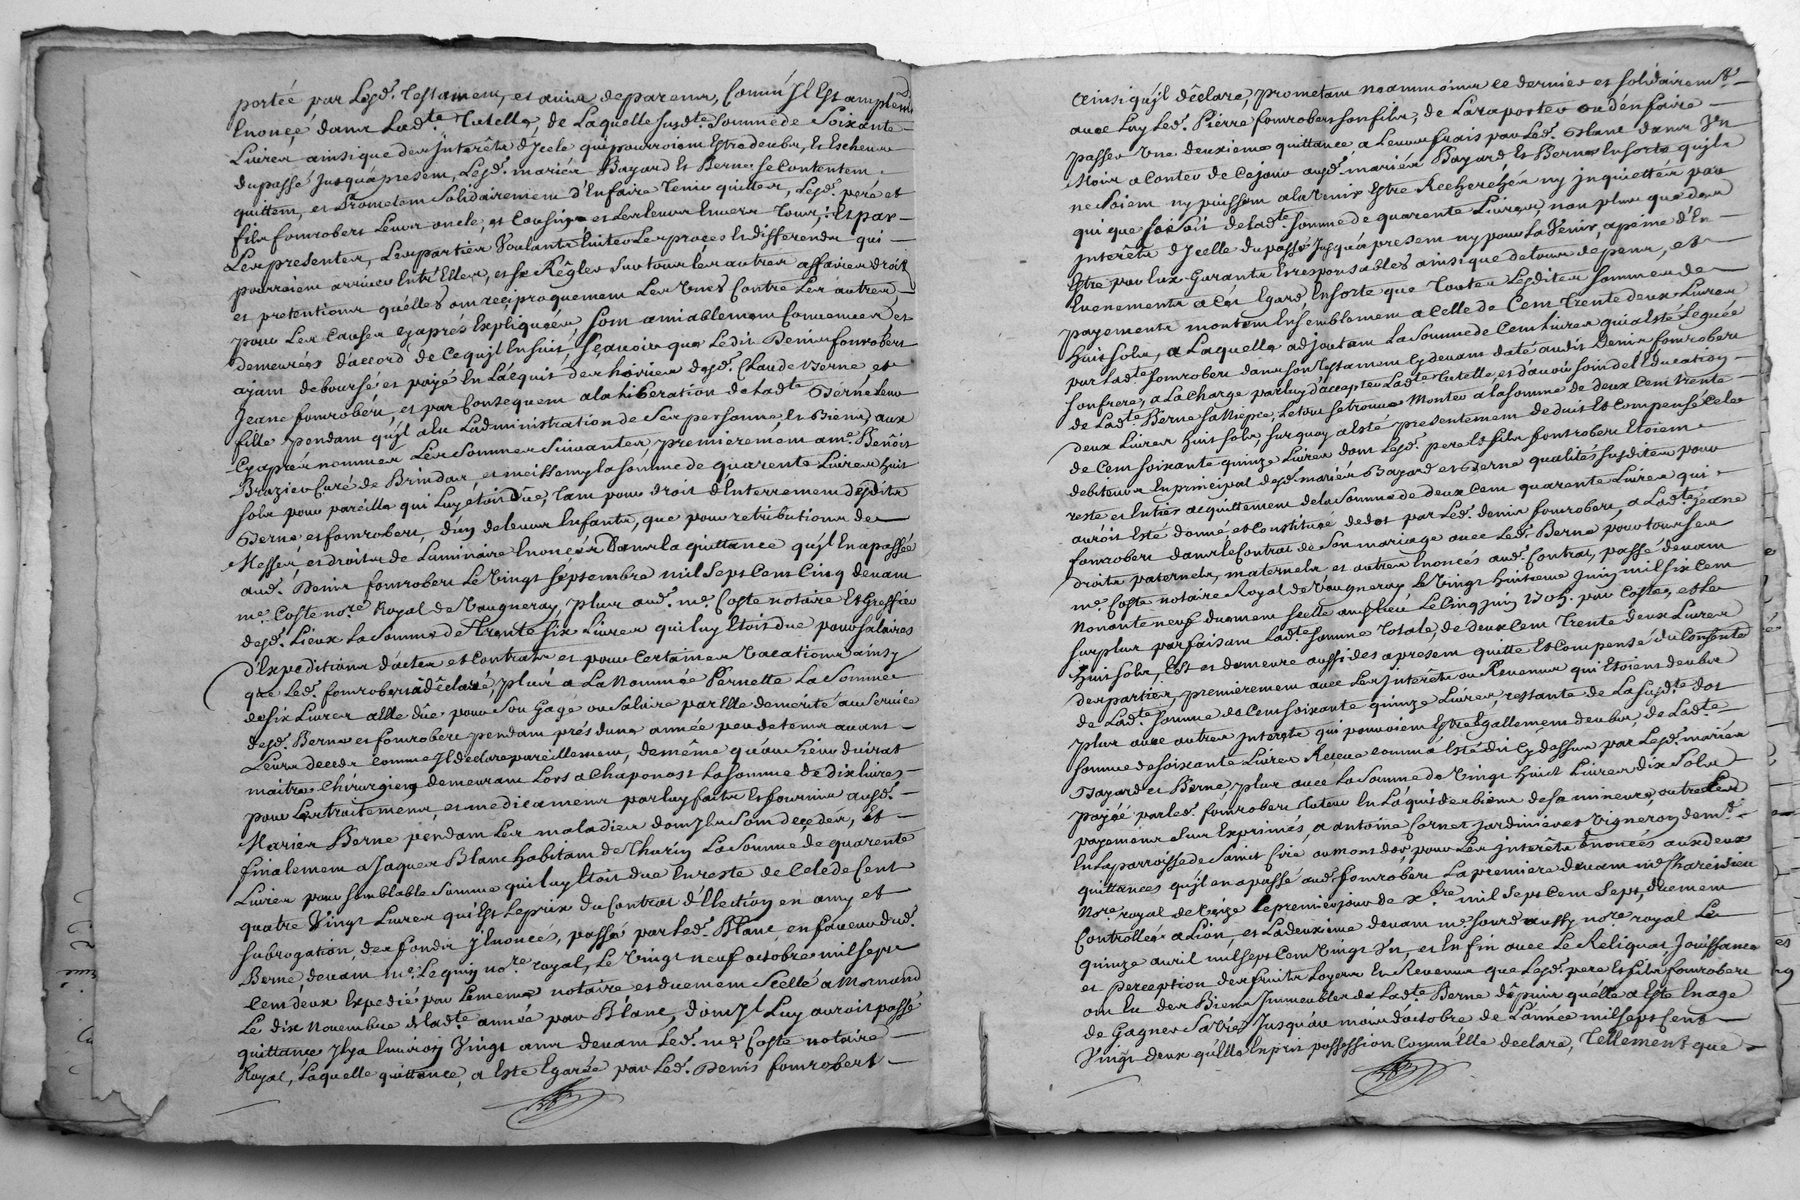 portée par Lesd. Testament, et avis de parens, Comm' Il Est amplemt
Enoncé dans Ladte Tutelle, de Laquelle susdte. Somme de Soixante
Livres ainsi que des Interêts d'Icelle qui pourroient Estre deubs, Et Escheus
du passé Jusqu'a present, Lesd. mariés Bayard Et Berne se Contentent
quittent, et Promettent Solidairement d'En faire tenir quittes, Lesd. pere et
fils fonrobert Leurs oncle, et Cousin, et Les Leurs Envers Tous; Et par
Les presentes, Les parties Voulants Eviter Les proces Et differends qui
pourroient arriver Entr'Elles, et se Régler sur tous Les autres affaires droits
et pretentions qu'elles ont reciproquement Les Unes Contre Les autres
pour Les Causes cy aprés Expliquées, sont amiablement Convenues et
demeurées d'accord de Ce qu'il En suit, Sçavoir que Ledit Denis fonrobert
ayant deboursé et payé En L'acquit des hoiries desd. Claude Berne et
Jeane fonrobert, et par Consequent a La Liberation de Ladte Berné Leur
fille pendant qu'il a Eu L'administration de Ses personne, Et Biens, aux
Cy aprés nommes Les Sommes Suivantes, premierement a me. Benoit
Brazier Curé de Brindas, et messemy la somme de quarente Livres huit
sols pour pareille qui Luy etoit Düe, Tant pour droit d'Enterrement desdits
Berne et fonrobert, d'un de Leurs Enfants, que pour retributions de
Messes et droits de Luminaire Enoncés Dans la quittance qu'il En a passée
aud. Denis fonrobert Le Vingt Septembre mil Sept Cent Cinq devant
me. Coste nore Royal de Vaugneray, plus aud. me. Coste notaire Et Greffier
desd. Lieux La Somme de Trente six Livres qui Luy Etoit Due pour salaires
d'Expeditions d'actes et Contrats et pour Certaines Vacations ainsy
que Led. fonrobert a déclaré, plus a La Nommée Pernette La Somme
de six Livres a Elle düe pour Son Gage ou Salaire par Elle demérité au Service
desd. Berne et fonrobert pendant prés d'une année peu de tems avant
Leurs deceds comme Il declare pareillement, de même qu'au Sieur
maitre Chirurgien demeurant Lors a Chaponost La somme de dix livres
pour Les traitements, et medicaments par luy faits Et fournis ausd.
Mariés Berne pendant Les maladies dont Ils Sont decedes, Et
finalement a Jaques Blanc habitant de Thurin La Somme de quarente
Livres pour semblable somme qui luy Etoit due En reste de Cele de Cent
quatre Vingt Livres qui Est Le prix du Contrat d'Ellection en amy et
subrogation, des fonds y Enoncés, passé par Led. Blanc en faveur dud.
Berne, devant me. Lequin nore. royal, Le Vingt neuf octobre mil sept
Cent deux Expedié par Le meme notaire et duement Scellé a Mornand
Le dix Novembre de Ladte année par Blanc, dont Il Luy auroit passé
quittance Il y a Environ Vingt ans devant Led. me. Coste notaire
Royal, Laquelle quittance, a Esté Egarée par Led. Denis fonrobert
ainsi qu'il déclare, prometant neammoins ce dernier et solidairemt.
avec Luy Led. Pierre fonrobert son fils, de La raporter ou d'en faire
passer Une deuxieme quittance a Leurs frais par Led. Blanc dans Un
Mois a Conter de Ce jour ausd. mariés Bayard Et Berne En sorte qu'ils
ne soient ny puissent a L'avenir Estre Recherchés ny Inquiettés par
qui que ce soit de Ladte. Somme de quarente Livres, non plus que des
Interêts d'Icelle du passé Jusqu'a present ny pour L'avenir, a peine d'En
Estre par Eux Garants Et responsables ainsique de tous depens, et
Evenements a Cet Egard En sorte que Toutes Lesdites Sommes de
payements montent Ensemblement a Celle de Cent Trente deux Livres
huit sols, a Laquelle adjoutant La Somme de Cent Livres qui a Esté Leguée
par Ladte fonrobert dans son Testament Cy devant daté audit Denis fonrobert
son frere, a La Charge par luy d'accepter Ladte Tutelle, et d'avoir soin de L'Education
de Ladte. Berne sa Niepce, Le tout se trouve Monter a La somme de deux Cent trente
deux Livres huit sols, sur quoy a Esté presentement deduit Et Compensé Cele
de Cent soixante quinze Livres dont Lesd. pere Et fils fonrobert Etoient
debiteurs En principal desd. mariés Bayard et Berne qualités susdites pour
reste et Entier acquittement de La Somme de deux Cent quarente Livres qui
auroit Esté donné, et Constitué de dot par Led. denis fonrobert, a Ladte Jeane
fonrobert dans Le Contrat de Son mariage avec Led. Berne pour tous ses
droits paternels, maternels et autres Enoncés aud. Contrat, passé devant
me. Coste notaire Royal de Vaugneray Le Vingt huitieme Juin mil six Cent
Nonante neuf duement scellé Le Cinq juin 1705. par Coste, et Le
surplus parfaisant Ladte somme Totale, de deux Cent Trente deux Livres
huit sols, Est et demeure aussi des a present quitte Et Compensé du Consente
des parties, premierement avec Les Interêts ou Revenus qui Etoient deubs
de Ladte. somme de Cent soixante quinze Livres, restante de La susdte. dot
plus avec autres Interets qui pouvoient Estre Egallement deubs, de Ladte.
somme de soixante Livres Receue comm'a Esté dit Cy dessus par Lesd. mariés
Bayard et Berne, plus avec La Somme de Vingt huit Livres dix Sols
payée par led. fonrobert Tuteur En L'acquit des biens de sa mineure, outre Les
payemens plus Exprimés, a antoine Cornet Jardinier et Vigneron demt.
En La parroisse de saint Ciré au mont d'or, pour Les Interêts Enoncés aux deux
quittances qu'il en a passé aud. fonrobert La premiere devant me
Nore. royal de Le premier jour de Xbre. mil sept Cent sept, duement
Controllée a Lion, et La deuxieme devant me. Jourd aussy nore. royal Le
quinze avril mil sept Cent Vingt Un, et En fin avec Le Reliquat Jouissance
et perception des fruits Loyers Et Revenus que Lesd. pere Et fils fonrobert
ont Eu des Biens Immeubles de Ladte. Berne dépuis qu'elle a Esté En age
de Gagner Sa Vie Jusqu'au mois d'octobre de L'année mil sept Cent
Vingt deux qu'elle En prit possession Comm'Elle déclare, Tellement que